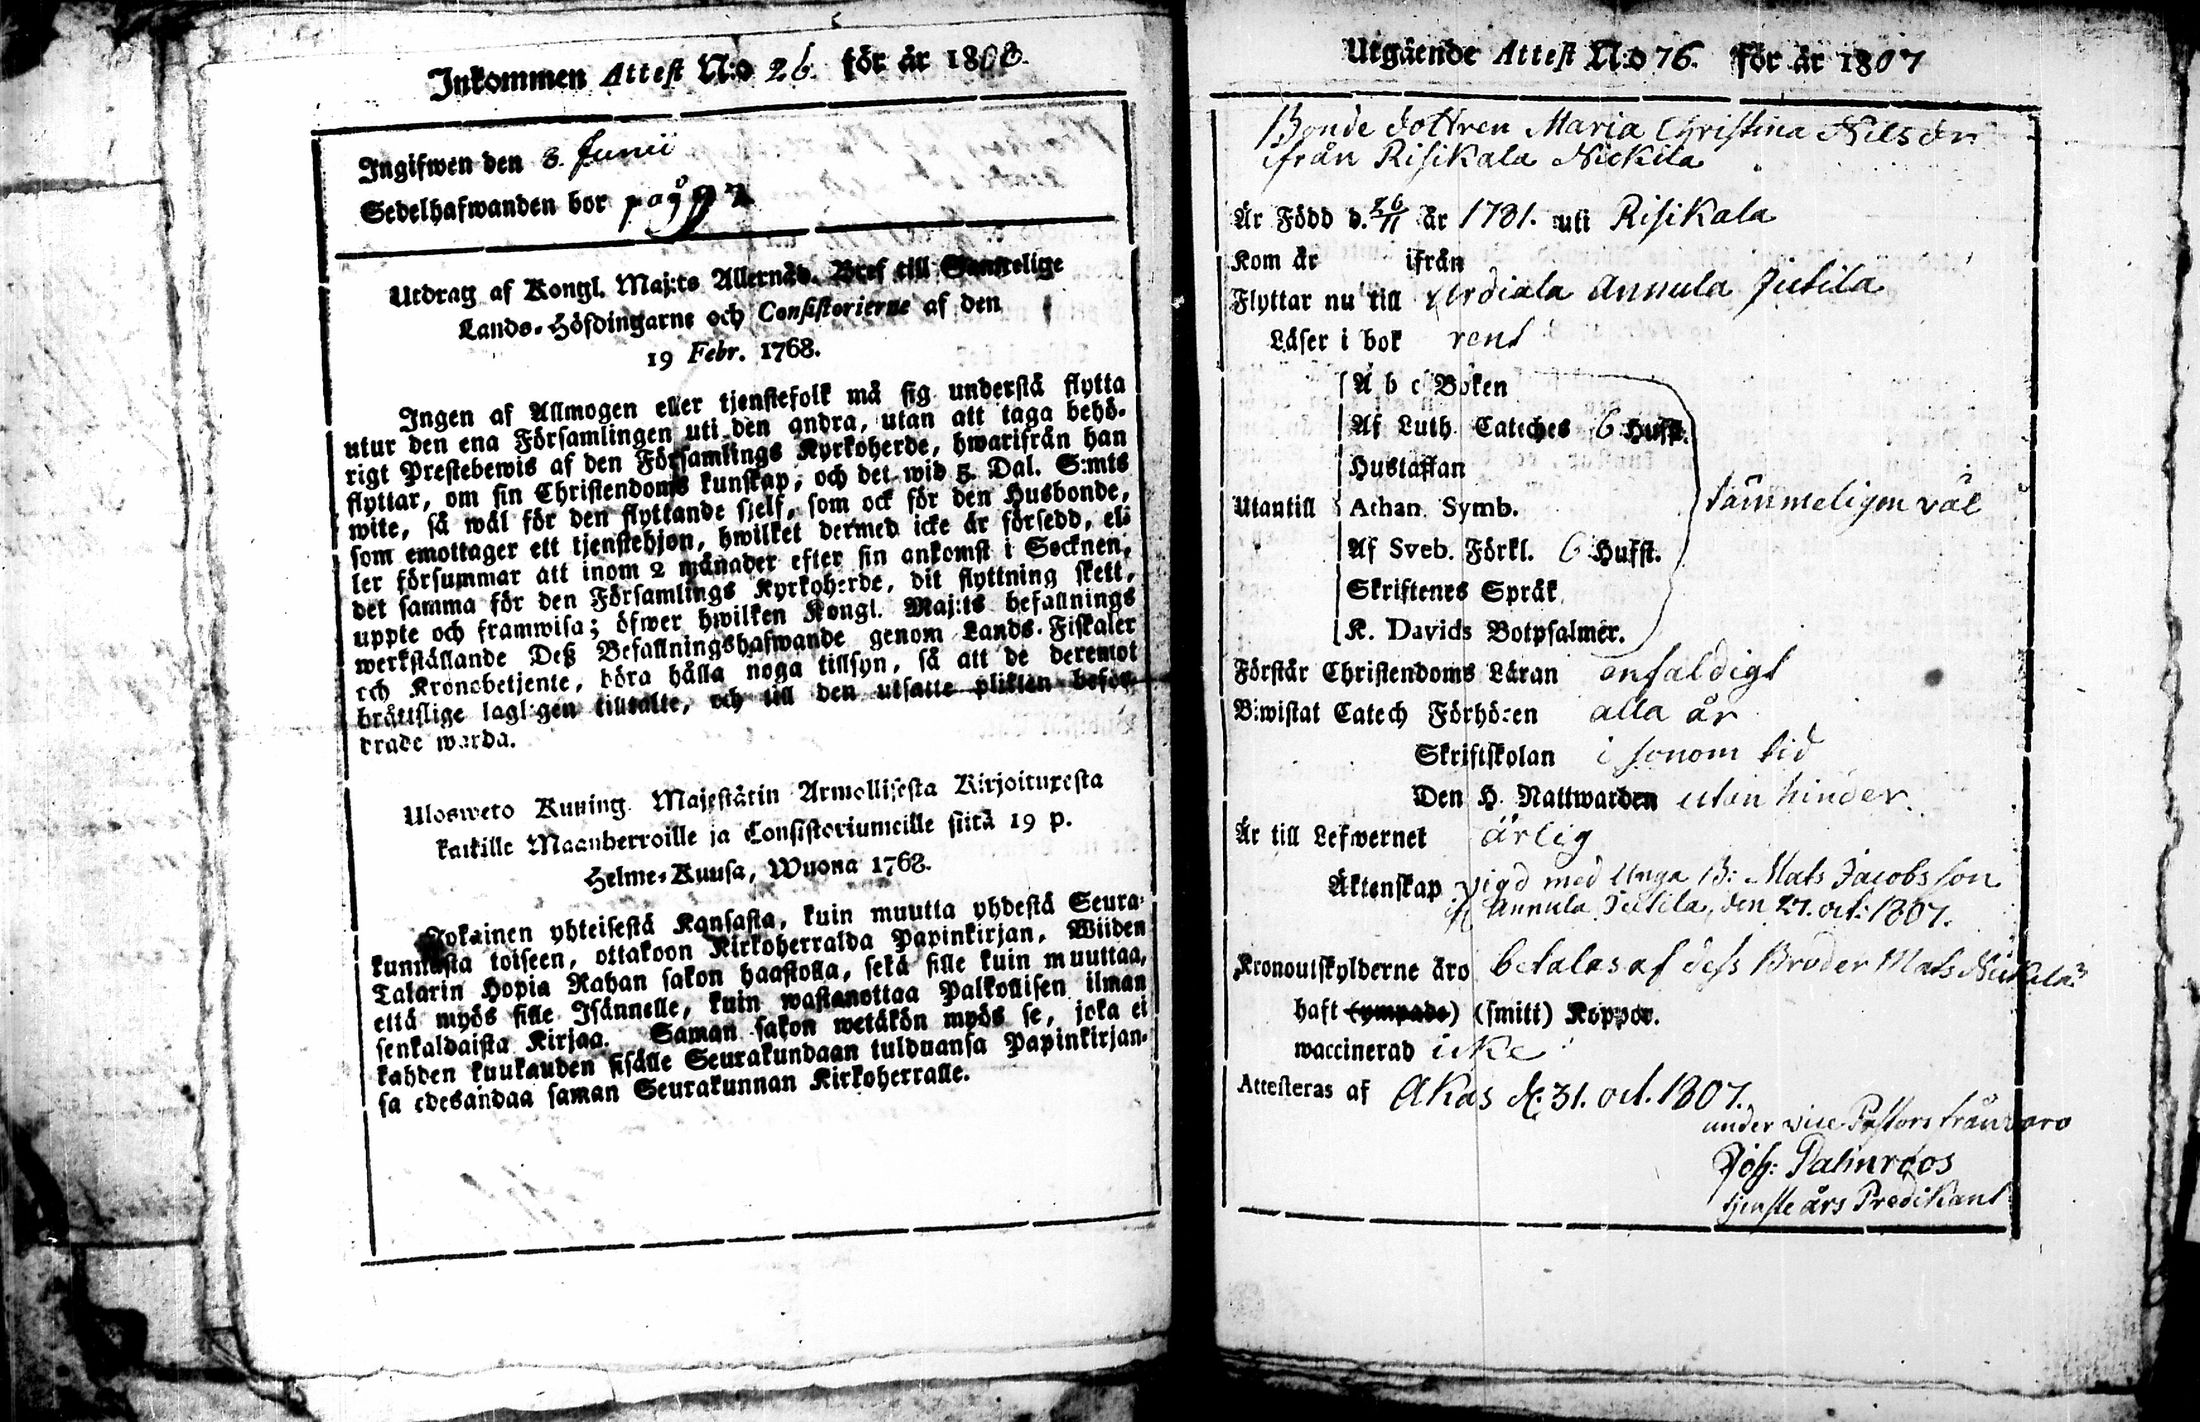 Inkommen Attest N:o 26. för år 1808.
Ingifwen den 8. Junii
Sedelhafwanden bor på
Utdrag af Kongl. Maj:ts Allernåd. Bref till Samtelige
Lands-Höfdingarne och Consistorierne af den
19 Febr. 1768.
Ingen af Allmogen eller tjenstefolk må sig understå flytta
utur den ena Församlingen uti den andra, utan att taga behö-
rigt Prestebewis af den Församlings Kyrkoherde, hwarifrån han
flyttar, om sin Christendoms kunskap, och det wid 5. Dal. S:mts
wite, så wäl för den flyttande sjelf, som ock för den Husbonde,
som emottager ett tjenstehjon, hwilket dermed icke är försedd, el-
ler försummar att inom 2 månader efter sin ankomst i Socknen,
det samma för den Församlings Kyrkoherde, dit flyttning skett,
uppte och framwisa; öfwer hwilken Kongl. Maj:ts befallnings
werkställande Deß Befallningshafwande genom Lands-Fiskaler
och Kronobetjente, böra hålla noga tillsyn, så att de deremot
bråttslige lagligen tilltalte, och till den utsatte plikten befor-
drade warda.
Ulosweto Kuning. Majestätin Armollisesta Kirjoituxesta
kaikille Maanherroille ja Consistoriumeille siitä 19 p.
Helme-Kuusa, Wuona 1768.
Jokainen yhteisestä Kansasta, kuin muutta yhdestä Seura-
kunnasta toiseen, ottakoon Kirkoherralda Papinkirjan, Wiiden
Talarin Hopia Rahan sakon haastolla, sekä sille kuin muuttaa,
että myös sille Isännelle, kuin wastanottaa Palkollisen ilman
senkaldaista Kirjaa. Saman sakon wetäkön myös se, joka ei
kahden kuukauden sisälle Seurakundaan tulduansa Papinkirjan-
sa edesandaa saman Seurakunnan Kirkoherralle.
Utgående Attest N:o 76. för år 1807
Bonde dottren Maria Christina Nilsdr
ifrån Risikala Nickila
Är Född d. 26/11 år 1781. uti Risikala
Kom år ifrån
Flyttar nu till Urdiala Annula Jutila
Läser i bok rent
A b c Boken
Af Luth. Catches 6 Hufst.
Hustaflan
Utantill Athan. Symb. tämmeligen väl
Af Sveb. Förkl. 6 Hufst.
Skriftenes Språk
K. Davids Botpsalmer.
Förstår Christendoms Läran enfaldigt
Biwistat Catech Förhören alla år
Skriftskolan i sonom tid
Den H. Nattwarden utan hinder.
Är till Lefwernet ärlig
Äktenskap vigd med Unga B: Mats Jacobsson
if Annula Jutila, den 27. oct: 1807.
Kronoutskylderne äro betalas af dess Broder Mats Nickila
haft (ympade) (smitt) Koppor.
waccinerad icke
Attesteras af Akas d. 31. oct. 1807.
under vice Pastors frånvaro
Joh: Palmroos
tjenste års Predikant